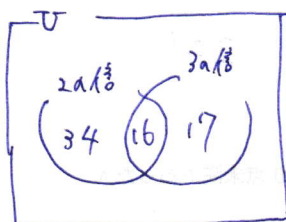 U
2の倍
3の倍
34 16 17